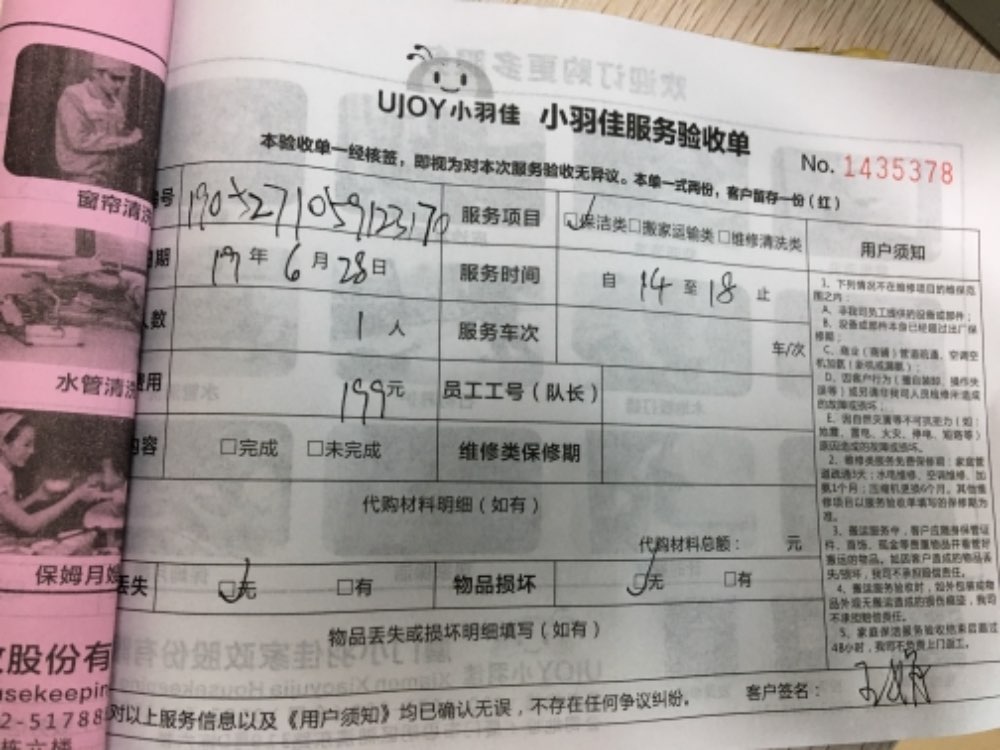 UJOY小羽佳 小羽佳服务验收单
No. 1435378
本验收单一经核签，即视为对本次服务验收无异议。本单一式两份，客户留存一份（红）
号 1905271059123170 服务项目 □保洁类□搬家运输类□维修清洗类 用户须知
期 19年6月28日 服务时间 自 14 至 18 止
人数 1人 服务车次 车/次
费用 199元 员工工号（队长）
内容 □完成 □未完成 维修类保修期
代购材料明细（如有）
代购材料总额： 元
丢失 □无 □有 物品损坏 □无 □有
物品丢失或损坏明细填写（如有）
对以上服务信息以及《用户须知》均已确认无误，不存在任何争议纠纷。 客户签名：
1、下列情况不在维修项目的维保范
围之内：
A、非我司员工提供的设备或部件；
B、设备或部件本身已经超过出厂保
修期；
C、商业（商铺）管道疏通、空调空
D、因客户行为（擅自装卸、操作失
误等）或另请非我司人员维修所造成
的故障或损坏；
E、因自然灾害等不可抗拒力（如：
地震、雷电、火灾、停电、短路等）
原因造成的故障或损坏。
2、维修类服务免费保修期：家庭管
道疏通3天；水电维修、空调维修、加
氨1个月；压缩机更换6个月。其他维
修项目以服务验收单填写的保修期为
准。
3、搬运服务中，客户应随身保管证
件、首饰、现金等贵重物品并看管好
搬运的物品。如因客户造成的物品丢
失/损坏，我司不承担赔偿责任。
4、搬运服务验收时，如外包装或物
品外观无搬运造成的损伤痕迹，我司
不承担赔偿责任。
5、家庭保洁服务验收结束后超过
48小时，我司不负责上门返工。
窗帘清洗
水管清洗
保姆月嫂
股份有
usekeepin
2-51788
栋六楼